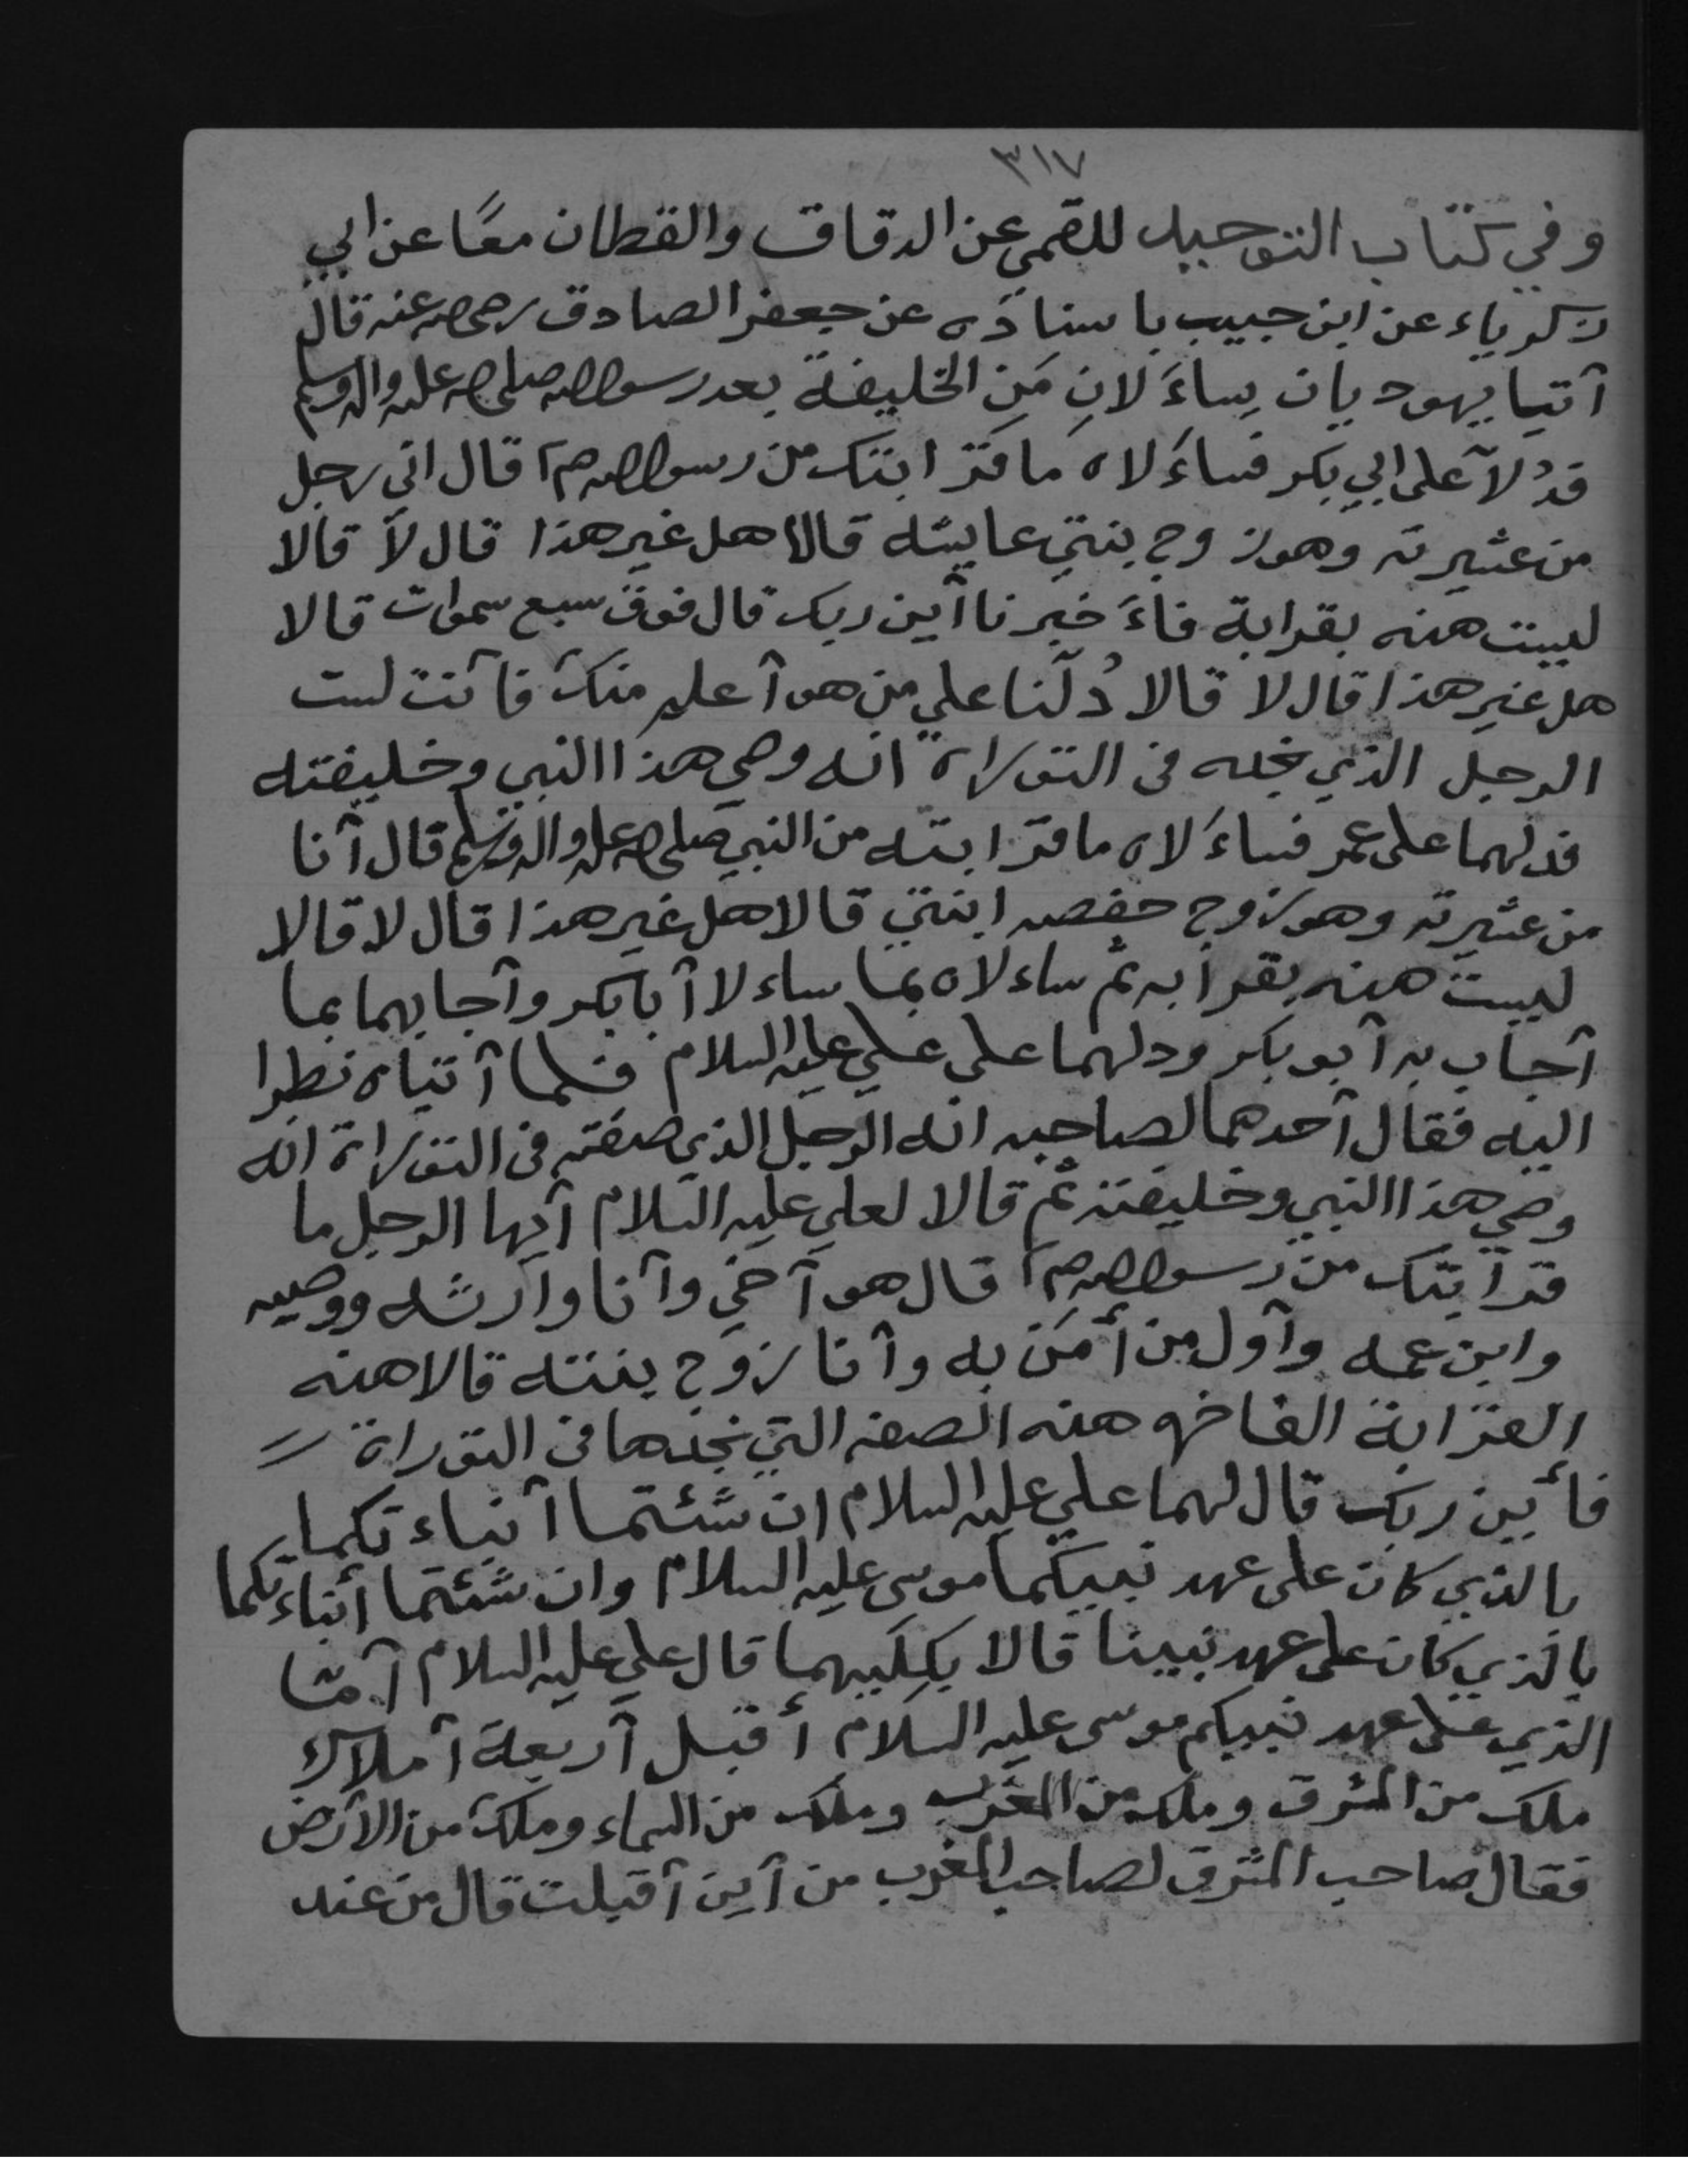 ٣١٧
وفي كتاب التوحيد للقمي عن الدقاق والقطان معًا عن ابي
زكرياء عن ابن حبيب باسناده عن جعفر الصادق رضي الله عنه قال
آتيا يهوديان يساءَلانِ مَنِ الخليفة بعد رسول الله صلى الله عليه واله وسلم
قدُلاّ على ابي بكر فساءَلاه ما قرابتك من رسول الله صم قال اني رجل
من عشيرته وهو زوج بنتي عايشه قالا هل غير هذا قال لا قالا
ليست هذه بقرابة فاءَخبرنا آين ربك قال فوق سبع سموات قالا
هل غير هذا قال لا قالا دُلّنا علي من هو آعلم منك فآنت لست
الرجل الذي نجده في التوراة انه وصي هذا النبي وخليفته
فدلهما على عمر فساءَلاه ما قرابته من النبي صلى الله عليه واله وسلم قال آنا
من عشيرته وهو زوج حفصه ابنتي قالا هل غير هذا قال لا قالا
ليست هذه بقرابه ثم ساءلاه بما ساءلا آبابكر وآجابهما بما
آجاب به آبو بكر ودلهما على علي عليه السلام فلما آتياه نظرا
اليه فقال آحدهما لصاحبه انه الرجل الذي صفته في التوراة انه
وصي هذا النبي وخليفته ثم قالا لعلي عليه السلام آيها الرجل ما
قرابتك من رسول الله صم قال هو آخي وآنا وارثه ووصيه
وابن عمه وآول من أمَنَ به وآنا زوج بنته قالا هذه
القرابة الفاخره هذه الصفه التي نجدها في التوراة
فأين ربك قال لهما علي عليه السلام ان شئتما آنباءتكما
بالذي كان على عهد نبيكما موسى عليه السلام وان شئتما أنباءتكما
بالذي كان على عهد نبينا قالا بكليهما قال علي عليه السلام آمّا
الذي على عهد نبيكم موسى عليه السلام أقبل آربعة آملاك
ملك من المشرق وملك من المغرب وملك من السماء وملك من الآرض
فقال صاحب المشرق لصاحب المغرب من آين آقبلت قال من عند